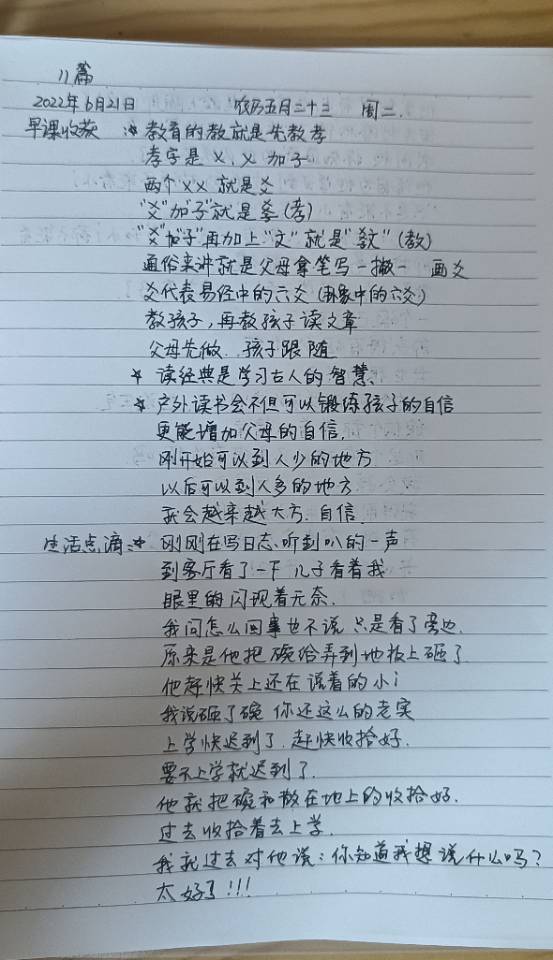 11篇
2022年6月21日 农历五月二十三 周二.
早课收获:★教育的教就是先教孝
孝字是 ㄨ、ㄨ 加子
两个ㄨㄨ就是爻
"爻"加"子"就是孝(孝)
"爻"加"子"再加上"文"就是"教"(教)
通俗来讲就是父母拿笔写一撇一 画爻
爻代表易经中的六爻(卦象中的六爻)
教孩子,再教孩子读文章
父母先做.孩子跟随
★ 读经典是学习古人的智慧、
★ 户外读书会不但可以锻练孩子的自信
更能增加父母的自信.
刚开始可以到人少的地方
以后可以到人多的地方
就会越来越大方.自信.
生活点滴:★刚刚在写日志、听到叭的一声
到客厅看了一下 儿子看着我
眼里的闪现着无奈.
我问怎么回事也不说 只是看了旁边.
原来是他把碗给弄到地板上砸了
他赶快关上还在说着的小i
我说砸了碗 你还这么的老实
上学快迟到了.赶快收拾好.
要不上学就迟到了.
他就把碗和散在地上的收拾好.
过去收拾着去上学.
我就过去对他说:你知道我想说什么吗?
太好了!!!